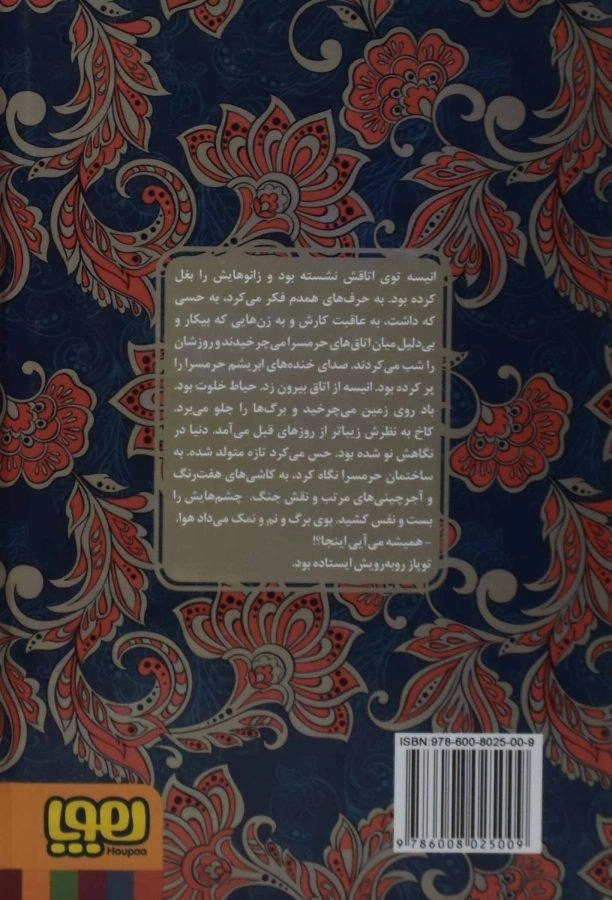 انیسه توی اتاقش نشسته بود و زانوهایش را بغل
کرده بود. به حرف‌های همدم فکر می‌کرد، به حسی
که داشت، به عاقبت کارش و به زن‌هایی که بیکار و
بی‌دلیل میان اتاق‌های حرمسرا می‌چرخیدند و روزشان
را شب می‌کردند. صدای خنده‌های ابریشم حرمسرا را
پر کرده بود. انیسه از اتاق بیرون زد. حیاط خلوت بود.
باد روی زمین می‌چرخید و برگ‌ها را جلو می‌برد.
کاخ به نظرش زیباتر از روزهای قبل می‌آمد. دنیا در
نگاهش نو شده بود. حس می‌کرد تازه متولد شده. به
ساختمان حرمسرا نگاه کرد، به کاشی‌های هفت‌رنگ
و آجرچینی‌های مرتب و نقش جنگ. چشم‌هایش را
بست و نفس کشید. بوی برگ و نم و نمک می‌داد هوا.
- همیشه می‌آیی اینجا؟!
توپاز روبه‌رویش ایستاده بود.
ISBN:978-600-8025-00-9
9 786008 025009
هوپا
Houpaa